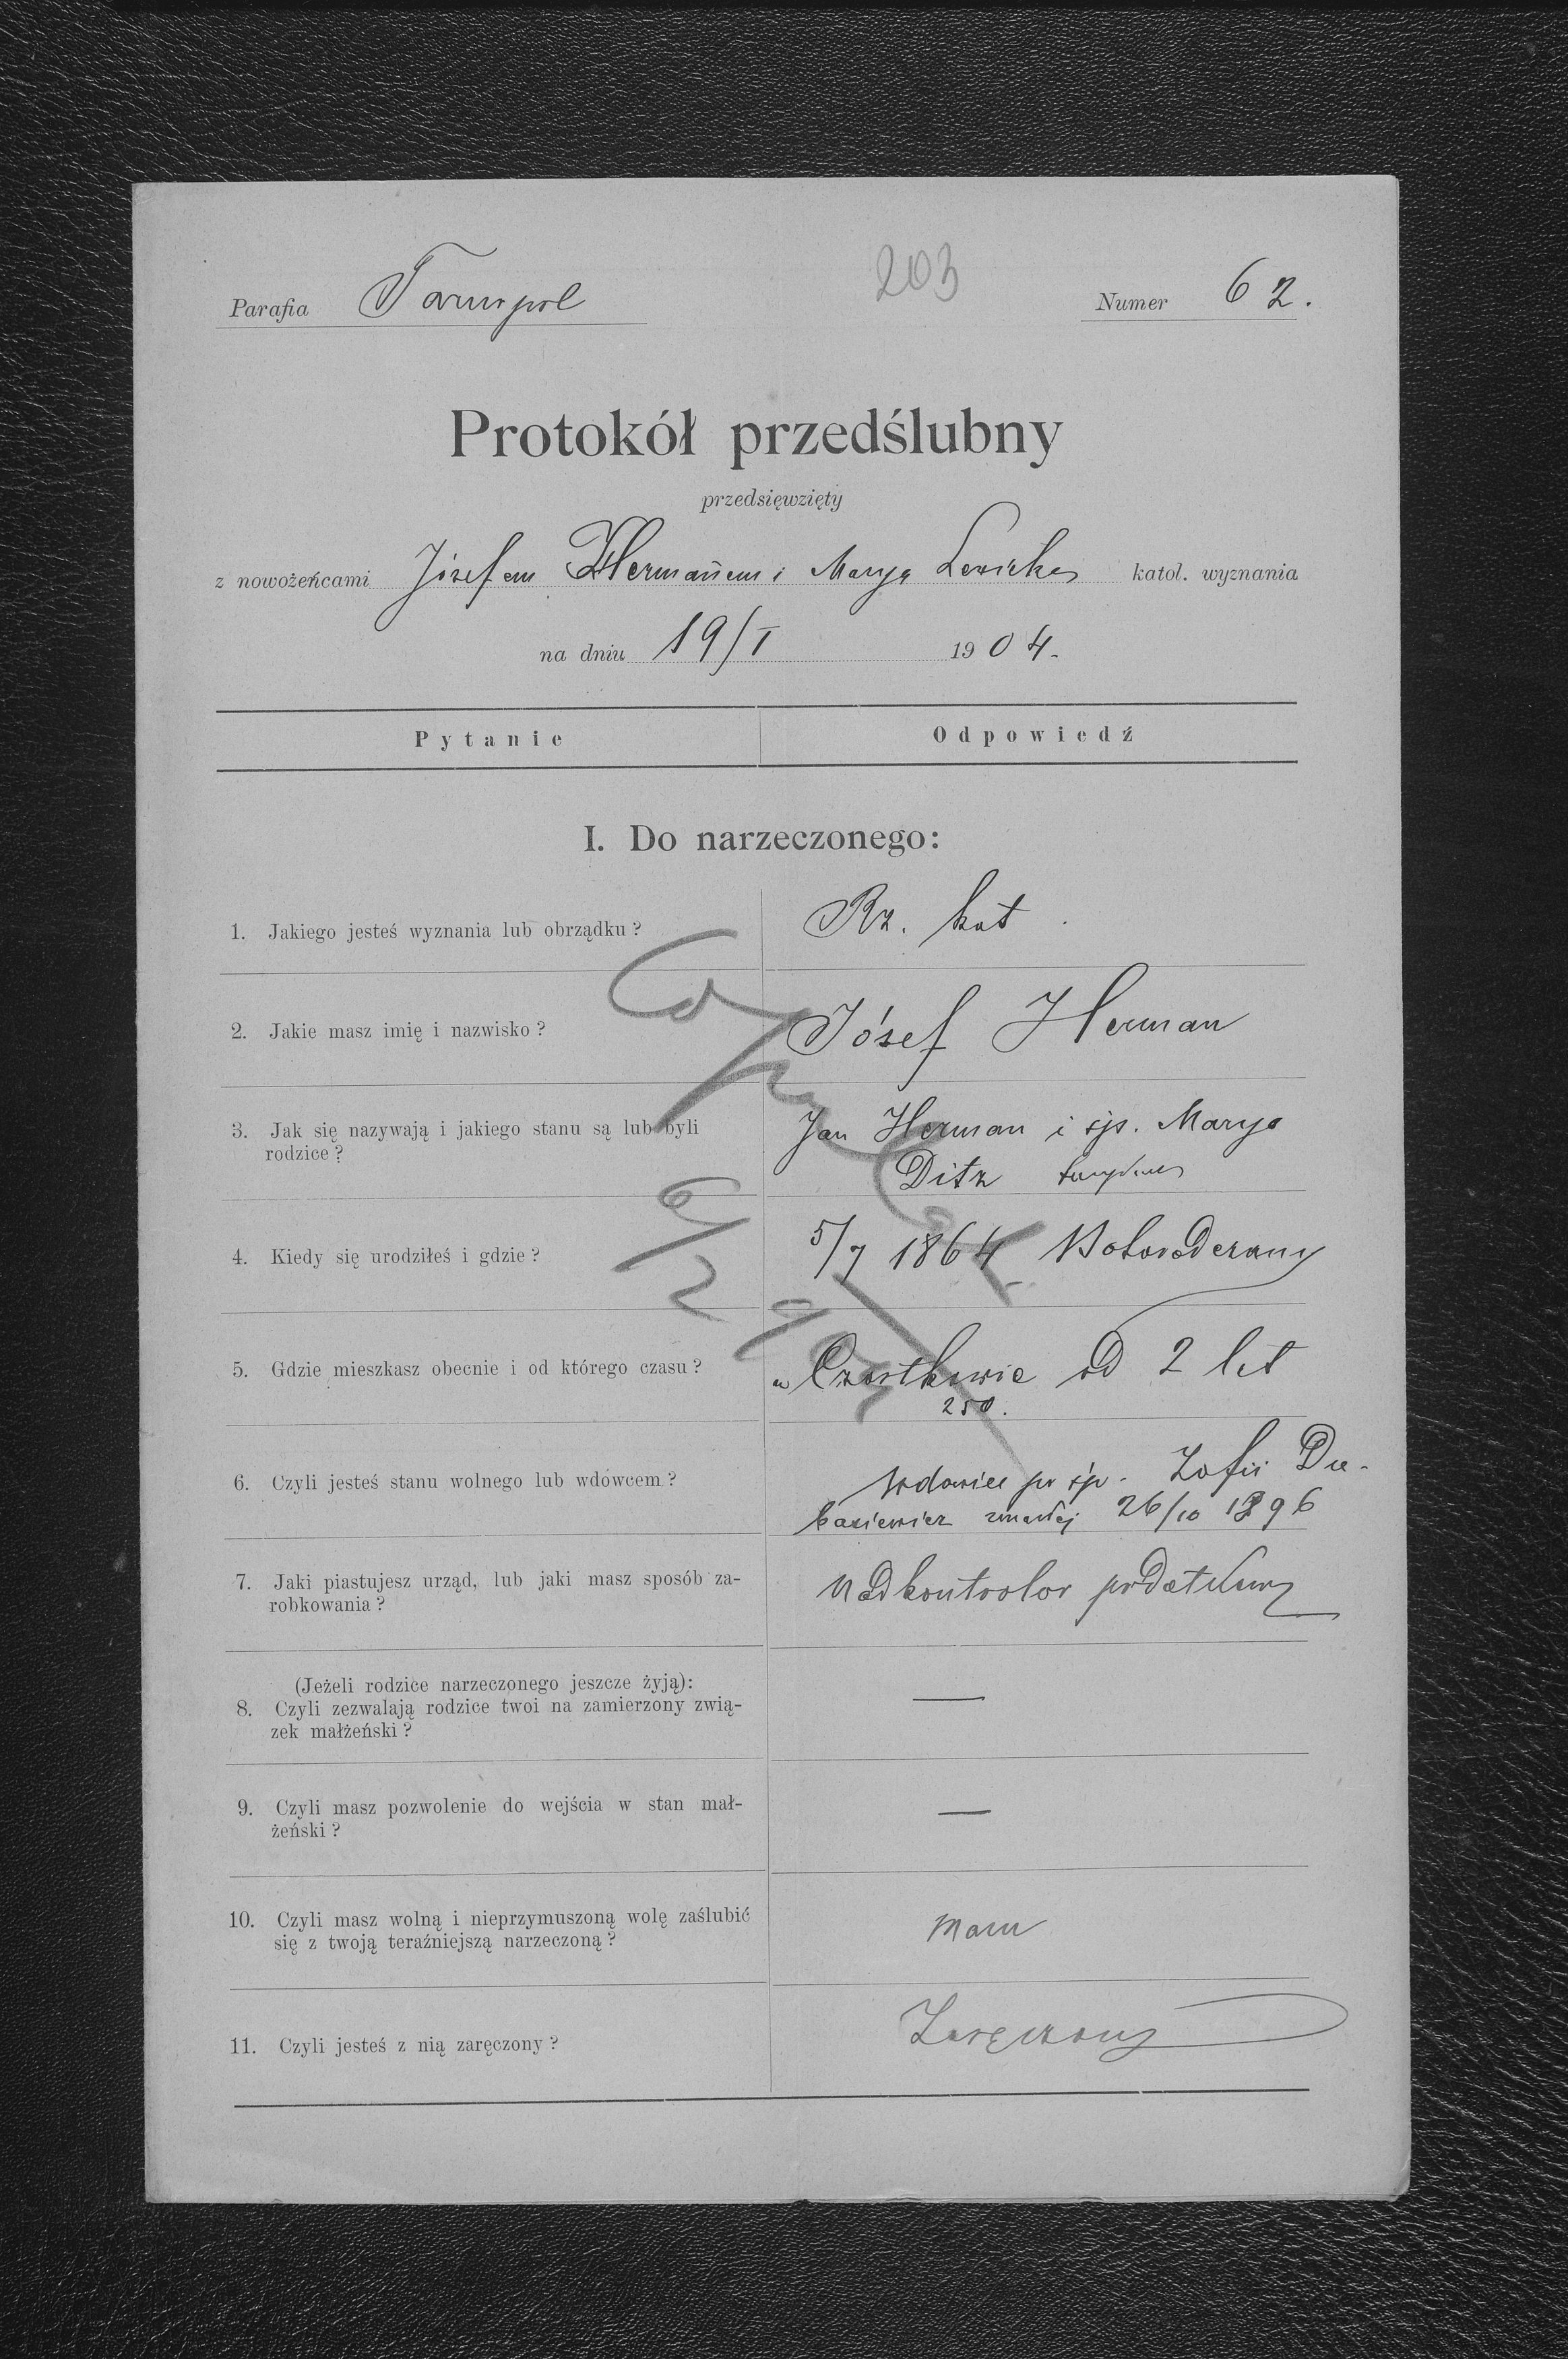 Parafia Tarnopol
203
Numer 62.
Protokół przedślubny
przedsięwzięty
z nowożeńcami Józefem Hermanem i Maryą Lewicką katol. wyznania
na dniu 19/I 1904.
Pytanie
Odpowiedź
I. Do narzeczonego:
1. Jakiego jesteś wyznania lub obrządku?
Rz. kat.
2. Jakie masz imię i nazwisko?
Józef Herman
3. Jak się nazywają i jakiego stanu są lub byli
rodzice?
Jan Herman i śp. Marya
Ditz
4. Kiedy się urodziłeś i gdzie?
5/7 1864
5. Gdzie mieszkasz obecnie i od którego czasu?
w Czortkowie od 2 lat
250.
6. Czyli jesteś stanu wolnego lub wdowcem?
Wdowiec po śp. Zofii Du-
zmarłej 26/10 1896
7. Jaki piastujesz urząd, lub jaki masz sposób za-
robkowania?
Nadkontrolor podatkowy
(Jeżeli rodzice narzeczonego jeszcze żyją):
8. Czyli zezwalają rodzice twoi na zamierzony zwią-
zek małżeński?
—
9. Czyli masz pozwolenie do wejścia w stan mał-
żeński?
—
10. Czyli masz wolną i nieprzymuszoną wolę zaślubić
się z twoją teraźniejszą narzeczoną?
Mam
11. Czyli jesteś z nią zaręczony?
Zaręczony